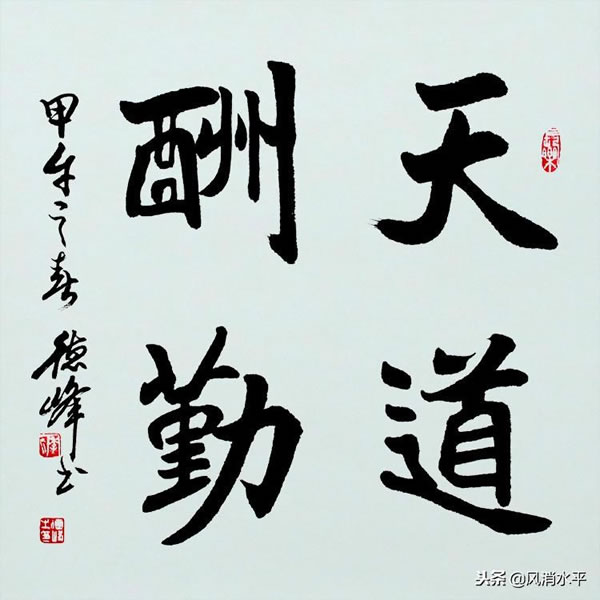 天道
酬勤
甲午之春 德峰书
头条 @风消水平